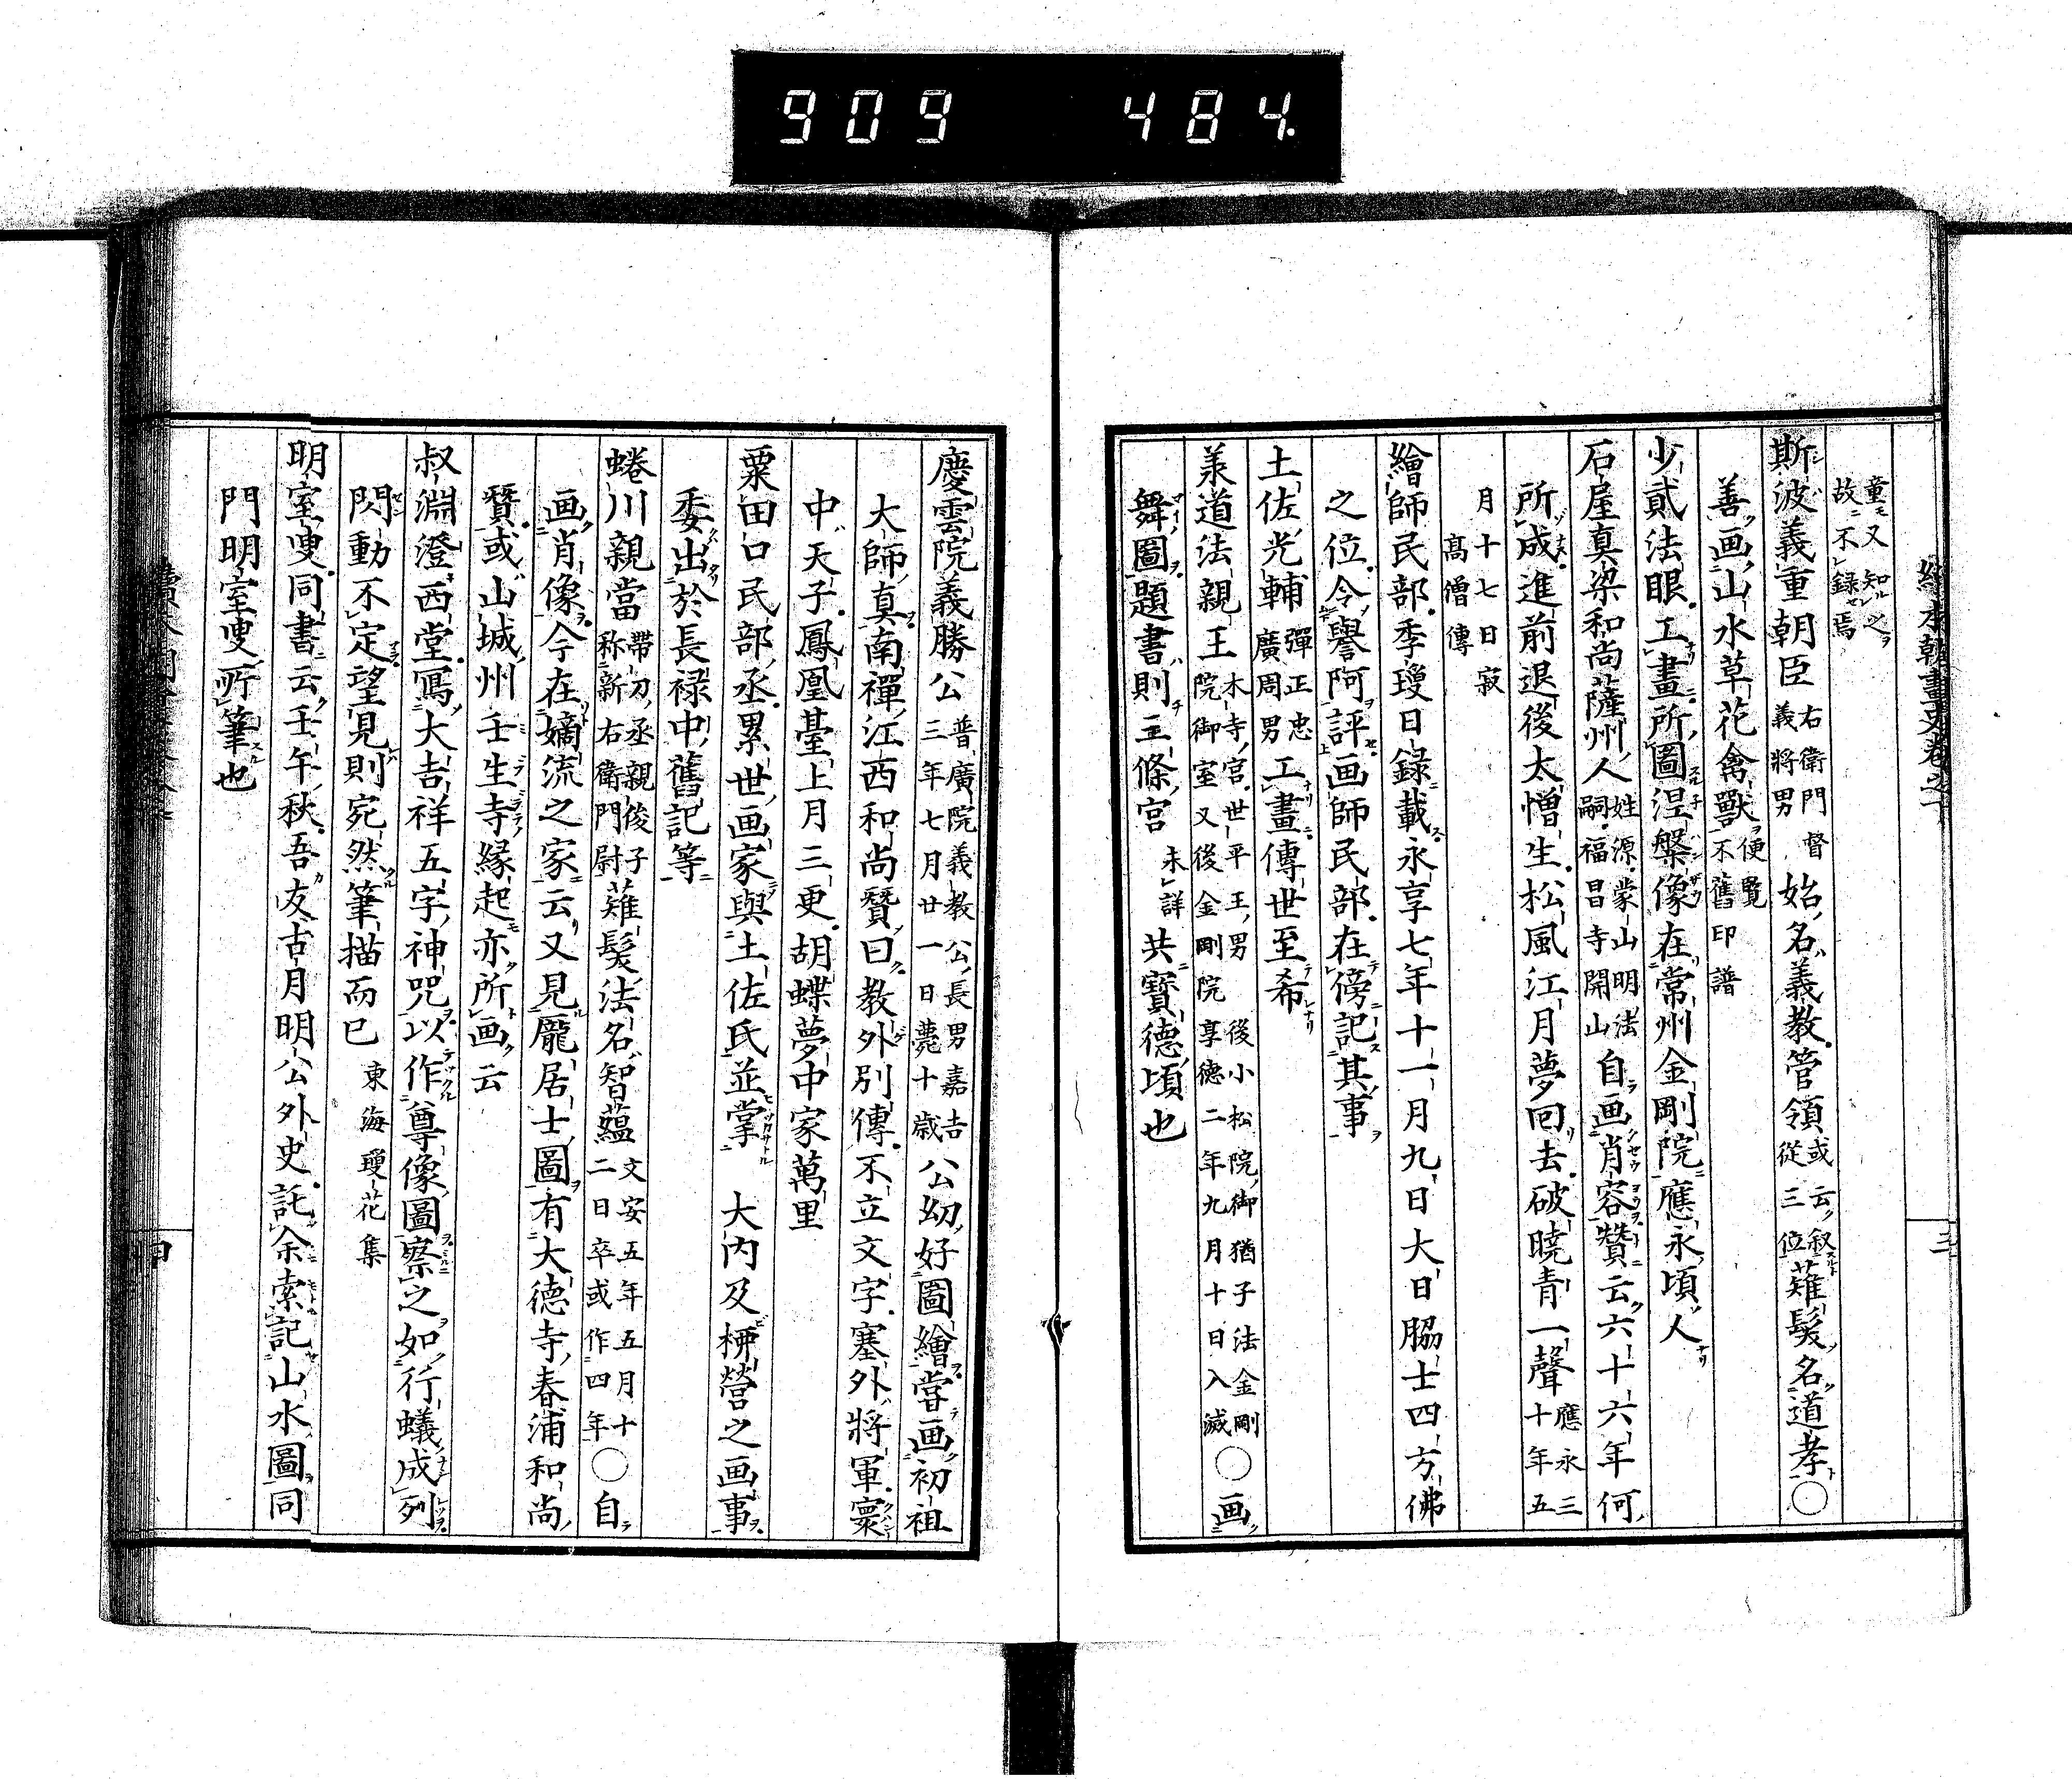 909 484
童モ又知ルレ之ヲ
故ニ不レ録セ焉
斯波義重朝臣 右衛門督 義將男 始ノ名ハ義教管領 或云叙 従三位 薙髪名道孝○
善画山水草花禽獸 便覧 不舊印譜
少貳法眼工畫所圖涅槃像在常州金剛院應永頃人
石屋真梁和尚薩州人 姓源蒙山明法 嗣福昌寺開山 自画肖容賛云六十六年何
所成進前退後太憎生松風江月夢回去破暁青一聲 應永三 十年五
月十七日寂 髙僧傳
繪師民部季瓊日録載永享七年十一月九日大日脇士四方佛
之位令譽阿評画師民部在傍記其事
土佐光輔 彈正忠 廣周男 工畫傳世至希
羕道法親王 木寺宮世平王男 後小松院御猶子法金剛 院御室又後金剛院 享德二年九月十日入滅 ○画
舞圖題書則三條宮 未詳 共寳德頃也
慶雲院義勝公 普廣院義教公長男嘉吉 三年七月廿一日薨十歳 公幼好圖繪嘗画初祖
大師真南禪江西和尚賛曰教外別傳不立文字塞外將軍寰
中天子鳳凰臺上月三更胡蝶夢中家萬里
粟田口民部丞累世画家與土佐氏並掌 大内及栁營之画事
委出於長禄中舊記等
蜷川親當 帶刀丞親俊子 称新右衛門尉 薙髪法名智蘊 文安五年五月十 二日卒或作四年 ○自
画肖像今在嫡流之家云又見龐居士圖有大德寺春浦和尚
賛或山城州壬生寺縁起亦所画云
叔淵澄西堂寫大吉祥五字神咒以作尊像圖察之如行蟻成列
閃動不定望見則宛然筆描而已 東海瓊花集
明室叟同書云壬午秋吾友古月明公外史託余索記山水圖同
門明室叟所筆也